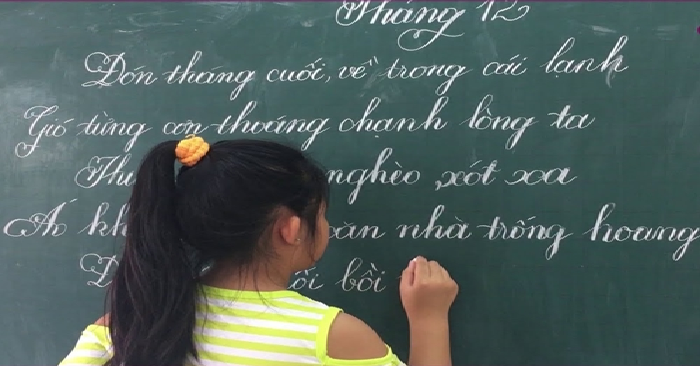 Tháng 12
Đón tháng cuối, về trong cái lạnh
Gió từng cơn thoáng chạnh lòng ta
nghèo xót xa
Áo nhà trống hoang
bồi